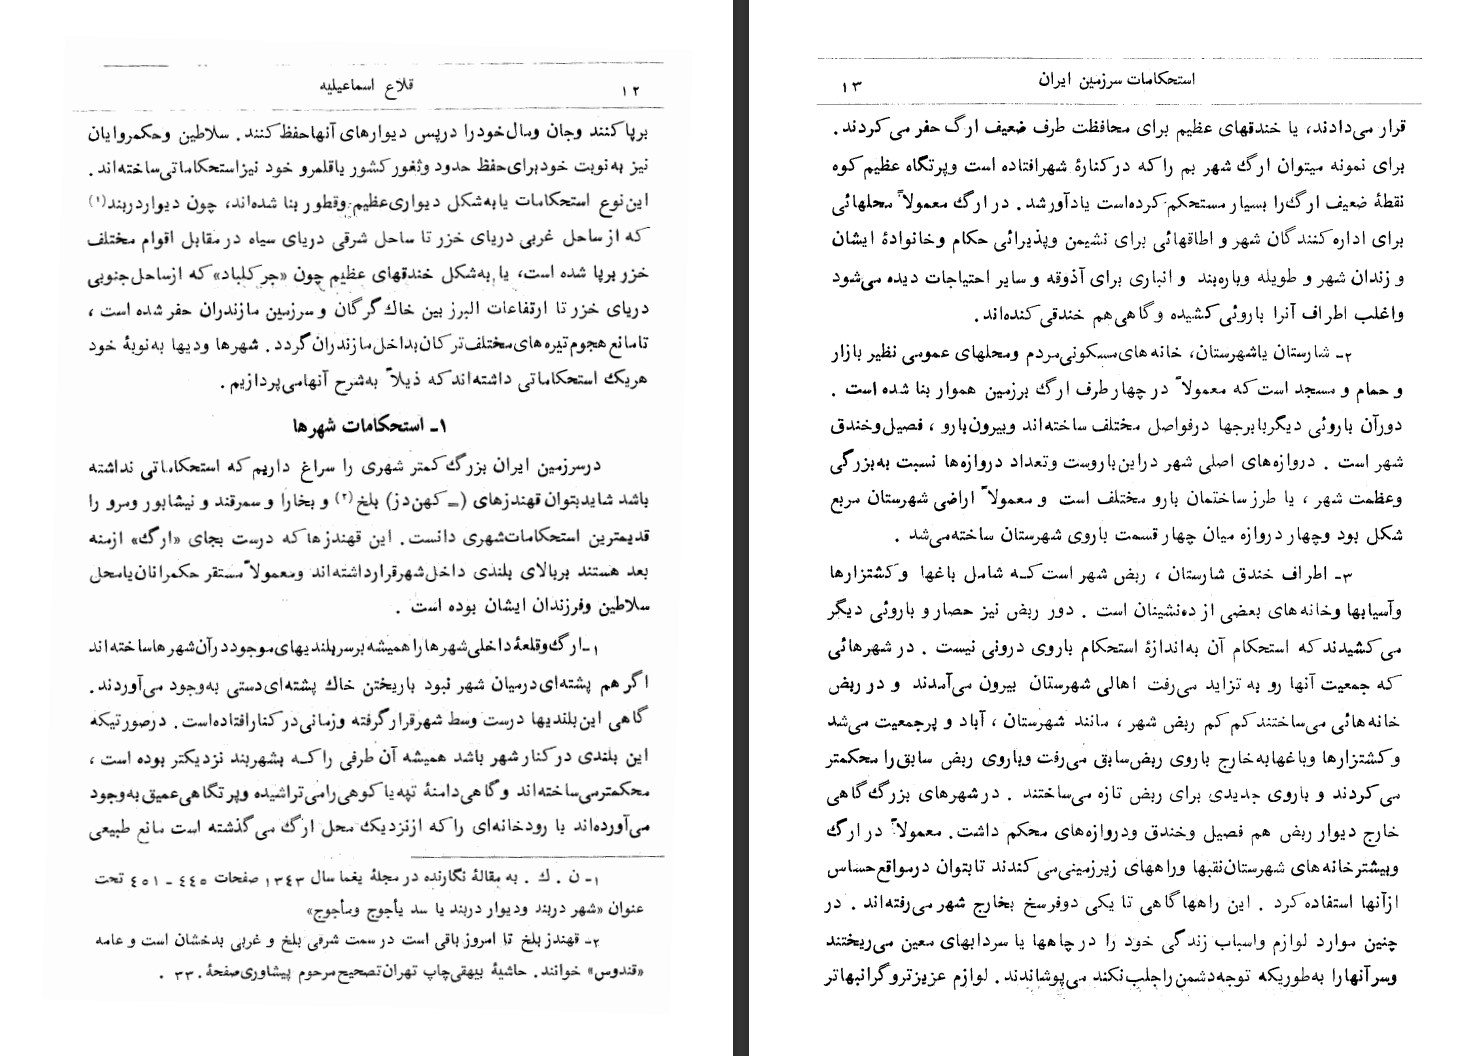 ۱۲
قلاع اسماعیلیه
برپا کنند وجان ومال خود را در پس دیوارهای آنها حفظ کنند. سلاطین وحکمروایان
نیز به نوبت خود برای حفظ حدود وثغور کشور یا قلمرو خود نیز استحکاماتی ساخته‌اند.
این نوع استحکامات یا به شکل دیواری عظیم وقطور بنا شده‌اند، چون دیوار دربند(۱)
که از ساحل غربی دریای خزر تا ساحل شرقی دریای سیاه در مقابل اقوام مختلف
خزر برپا شده است، یا به شکل خندقهای عظیم چون «جر کلباد» که از ساحل جنوبی
دریای خزر تا ارتفاعات البرز بین خاك گرگان و سرزمین مازندران حفر شده است،
تا مانع هجوم تیره‌های مختلف ترکان بداخل مازندران گردد. شهرها ودیها به نوبهٔ خود
هریك استحکاماتی داشته‌اند که ذیلاً به شرح آنها می‌پردازیم.
۱ـ استحکامات شهرها
درسرزمین ایران بزرگ کمتر شهری را سراغ داریم که استحکاماتی نداشته
باشد شاید بتوان قهندزهای (= کهن دز) بلخ(۲) و بخارا و سمرقند و نیشابور ومرو را
قدیمترین استحکامات شهری دانست. این قهندزها که درست بجای «ارگ» ازمنه
بعد هستند بر بالای بلندی داخل شهر قرار داشته‌اند ومعمولاً مستقر حکمرانان یا محل
سلاطین وفرزندان ایشان بوده است.
۱ـ ارگ و قلعهٔ داخلی شهرها را همیشه بر سر بلندیهای موجود در آن شهرها ساخته‌اند
اگر هم پشته‌ای درمیان شهر نبود با ریختن خاك پشته‌ای دستی به وجود می‌آوردند.
گاهی این بلندیها درست وسط شهر قرار گرفته وزمانی در کنار افتاده است. درصورتیکه
این بلندی در کنار شهر باشد همیشه آن طرفی را که بشهربند نزدیکتر بوده است،
محکمتر می‌ساخته‌اند وگاهی دامنهٔ تپه یا کوهی را می‌تراشیده وپرتگاهی عمیق به وجود
می‌آورده‌اند یا رودخانه‌ای را که از نزدیك محل ارگ می‌گذشته است مانع طبیعی
۱ـ ن. ك. به مقالهٔ نگارنده در مجلهٔ یغما سال ۱۳۴۳ صفحات ۴۴۵ ـ ۴۵۱ تحت
عنوان «شهر دربند ودیوار دربند یا سد یأجوج ومأجوج»
۲ـ قهندز بلخ تا امروز باقی است در سمت شرقی بلخ و غربی بدخشان است و عامه
«قندوس» خوانند. حاشیهٔ بیهقی چاپ تهران تصحیح مرحوم پیشاوری صفحهٔ ۳۳۰.
استحکامات سرزمین ایران
۱۳
قرار می‌دادند، یا خندقهای عظیم برای محافظت طرف ضعیف ارگ حفر می‌کردند.
برای نمونه میتوان ارگ شهر بم را که در کنارهٔ شهر افتاده است وپرتگاه عظیم کوه
نقطهٔ ضعیف ارگ را بسیار مستحکم کرده است یاد آورشد. در ارگ معمولاً محلهائی
برای اداره کنندگان شهر و اطاقهائی برای نشیمن وپذیرائی حکام وخانوادهٔ ایشان
و زندان شهر و طویله وباره‌بند و انباری برای آذوقه و سایر احتیاجات دیده می‌شود
واغلب اطراف آنرا باروئی کشیده وگاهی هم خندقی کنده‌اند.
۲ـ شارستان یا شهرستان، خانه‌های مسکونی مردم ومحلهای عمومی نظیر بازار
و حمام و مسجد است که معمولاً در چهار طرف ارگ بر زمین هموار بنا شده است.
دور آن باروئی دیگر با برجها درفواصل مختلف ساخته‌اند وبیرون بارو، فصیل وخندق
شهر است. دروازه‌های اصلی شهر در این باروست وتعداد دروازه‌ها نسبت به بزرگی
وعظمت شهر، یا طرز ساختمان بارو مختلف است و معمولاً اراضی شهرستان مربع
شکل بود وچهار دروازه میان چهار قسمت باروی شهرستان ساخته می‌شد.
۳ـ اطراف خندق شارستان، ربض شهر است که شامل باغها وکشتزارها
وآسیابها وخانه‌های بعضی از ده‌نشینان است. دور ربض نیز حصار و باروئی دیگر
می‌کشیدند که استحکام آن به اندازهٔ استحکام باروی درونی نیست. در شهرهائی
که جمعیت آنها رو به تزاید می‌رفت اهالی شهرستان بیرون می‌آمدند و در ربض
خانه‌هائی می‌ساختند کم کم ربض شهر، مانند شهرستان، آباد و پرجمعیت می‌شد
وکشتزارها وباغها به خارج باروی ربض سابق می‌رفت وباروی ربض سابق را محکمتر
می‌کردند و باروی جدیدی برای ربض تازه می‌ساختند. در شهرهای بزرگ گاهی
خارج دیوار ربض هم فصیل وخندق ودروازه‌های محکم داشت. معمولاً در ارگ
وبیشتر خانه‌های شهرستان نقبها وراههای زیرزمینی می‌کندند تا بتوان در مواقع حساس
از آنها استفاده کرد. این راهها گاهی تا یکی دو فرسخ بخارج شهر می‌رفته‌اند. در
چنین موارد لوازم واسباب زندگی خود را در چاهها یا سردابهای معین می‌ریختند
وسر آنها را به طوریکه توجه دشمن را جلب نکند می‌پوشاندند. لوازم عزیزتر و گرانبهاتر